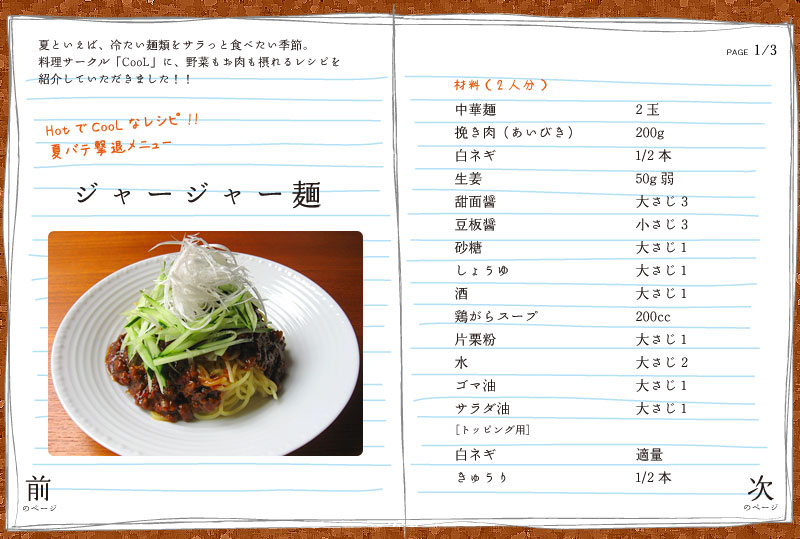 夏といえば、冷たい麺類をサラっと食べたい季節。
料理サークル『CooL』に、野菜もお肉も摂れるレシピを
紹介していただきました！！
Hot で CooL なレシピ！！
夏バテ撃退メニュー
ジャージャー麺
前
のページ
PAGE 1/3
材料（２人分）
中華麺 2 玉
挽き肉（あいびき） 200g
白ネギ 1/2 本
生姜 50g 弱
甜面醤 大さじ 3
豆板醤 小さじ 3
砂糖 大さじ 1
しょうゆ 大さじ 1
酒 大さじ 1
鶏がらスープ 200cc
片栗粉 大さじ 1
水 大さじ 2
ゴマ油 大さじ 1
サラダ油 大さじ 1
［トッピング用］
白ネギ 適量
きゅうり 1/2 本
次
のページ